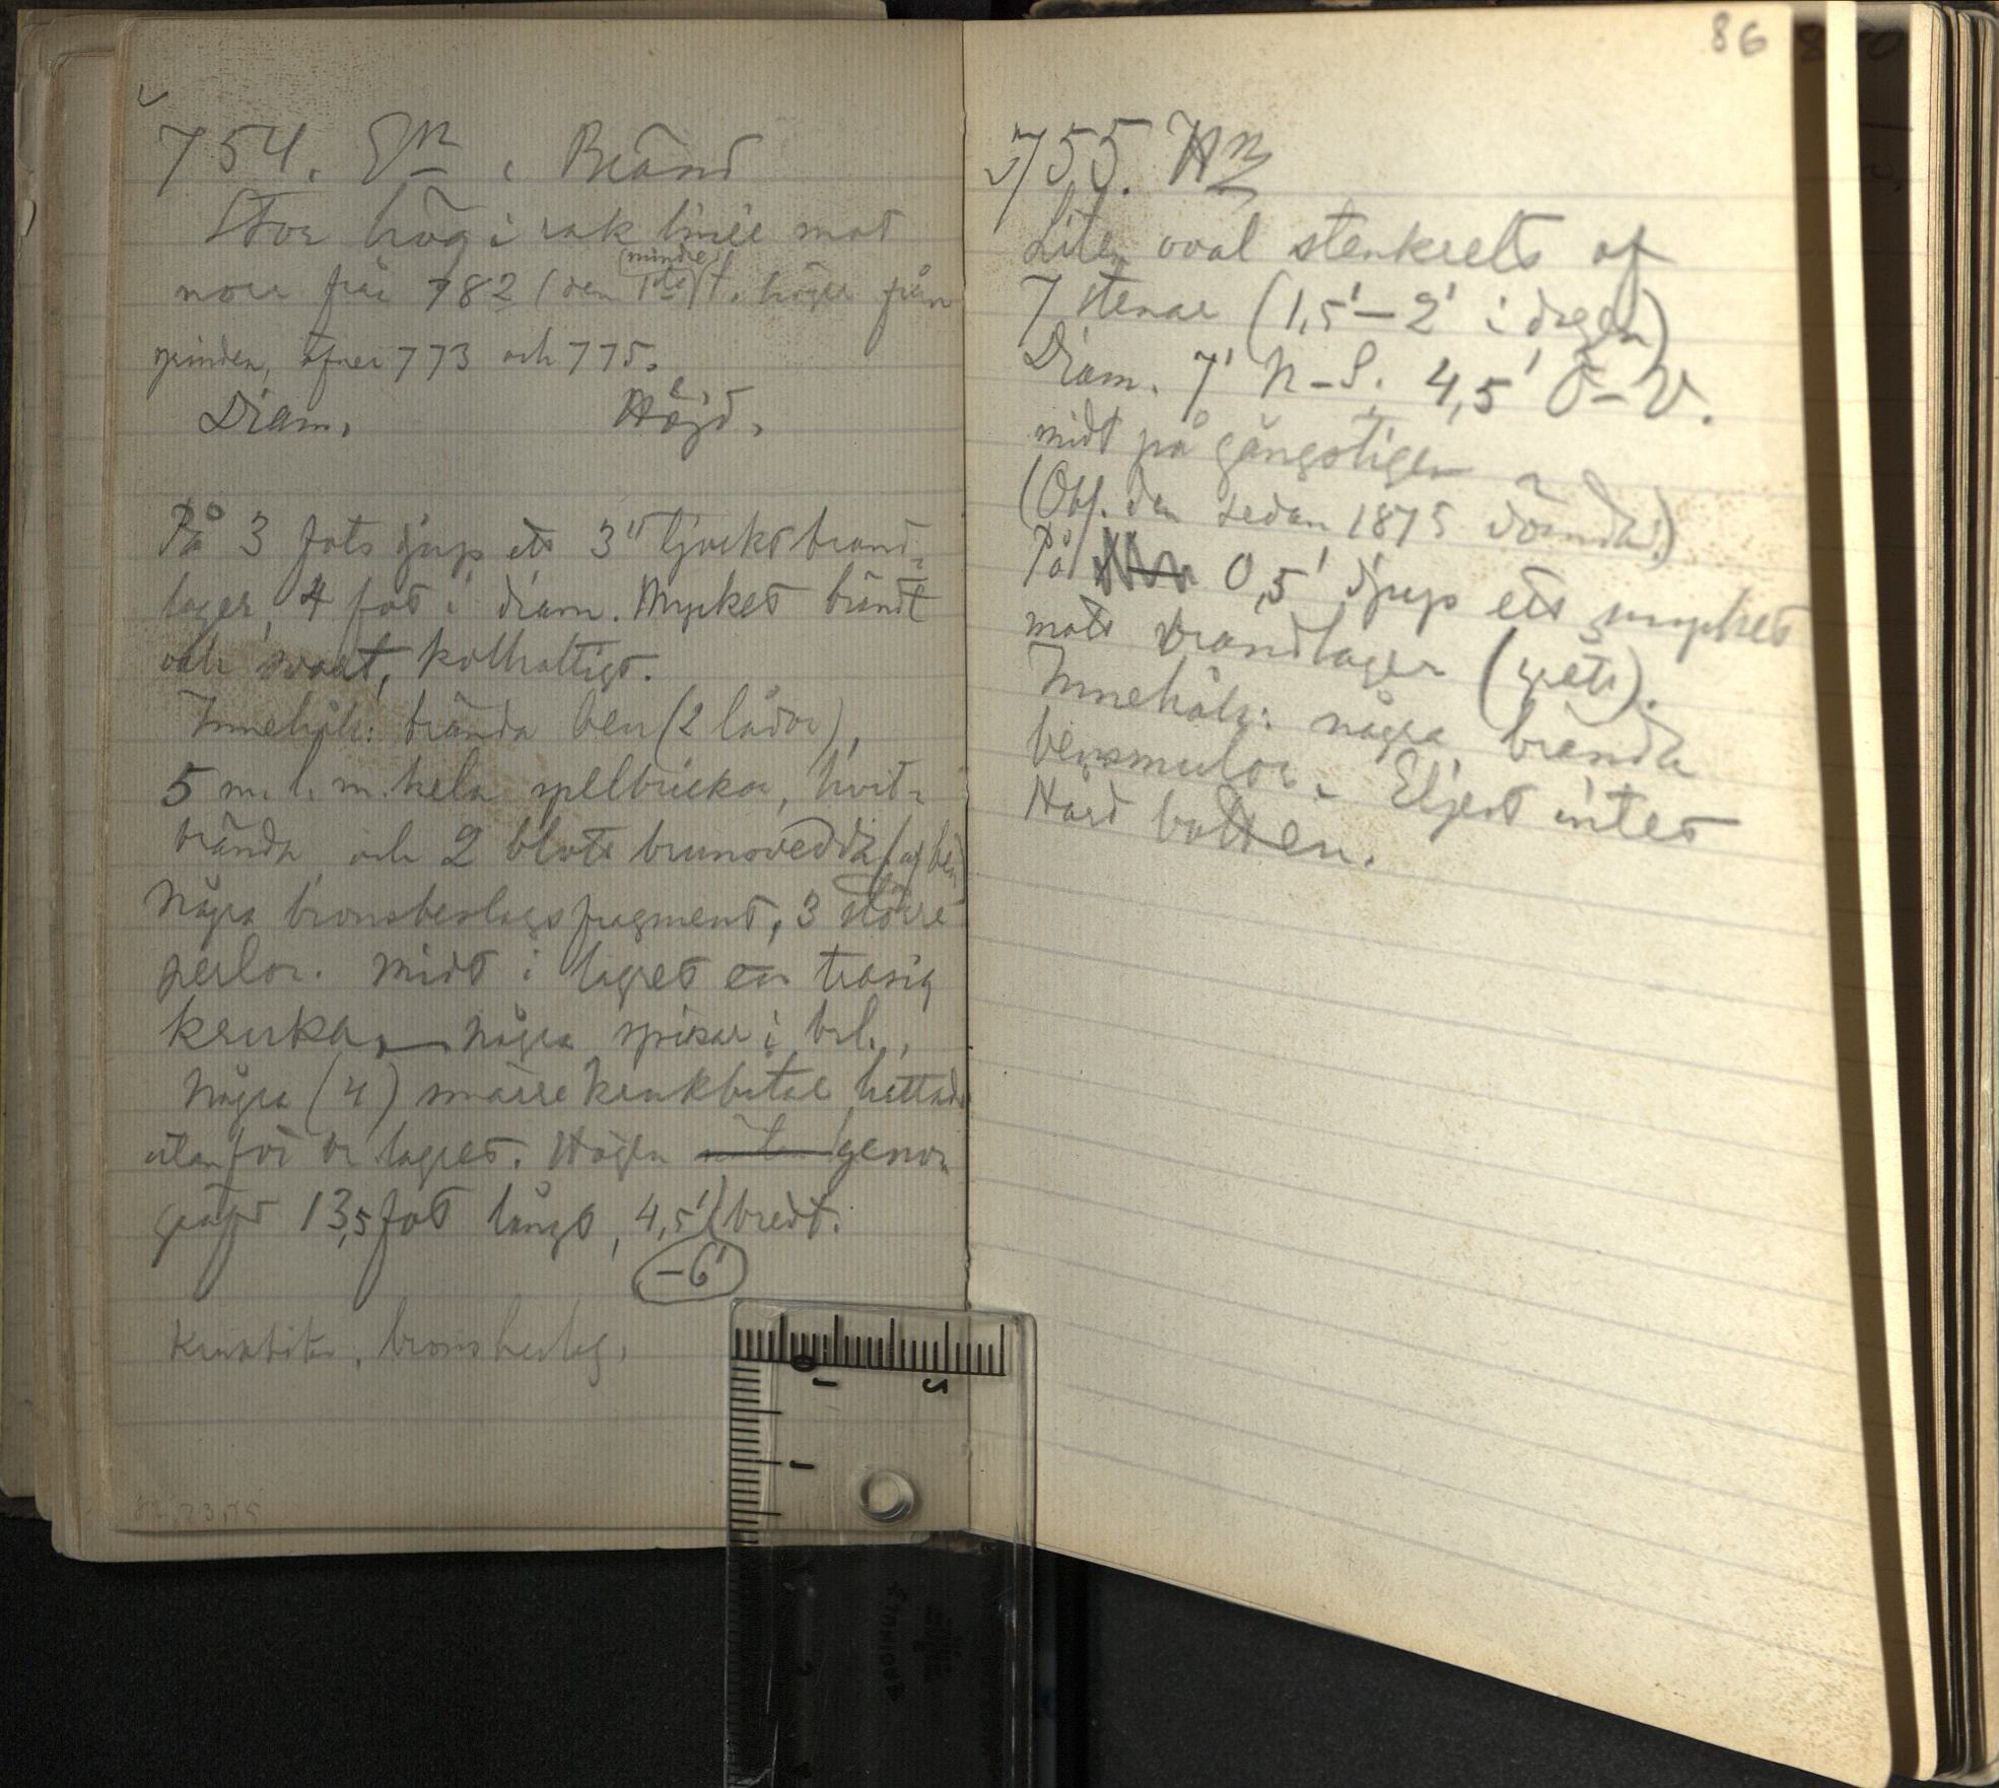 754. Bränd
Stor hög i rak linie mot
norr från 782 (den mindre t. höger från
grinden, öfver 773 och 775.
Diam. Höjd.
På 3 fots djup ett 3" tjockt brand-
lager, 4 fot i diam. Mycket brändt
och svart, kolhaltigt.
Innehöll: brända ben (2 lådor),
5 m. l. m. hela spelbrickor, hvit-
brända och 2 blott brunsvedda (af ben
Några bronsbeslagsfragment, 3 större
perlor. Midt i lagret en trasig
kruka. Några spikar i brl.,
Några (4) smärre krukbitar hittade
utanför br lagret. Högen genom
gräfd 13,5 fot långt, 4,5' bredt.
-6'
Krukbitar, bronsbeslag.
82, 73, 75
86
755. Hn
Liten oval stenkrets af
7 stenar (1,5'-2' i dagen)
Diam. 7' N-S. 4,5' Ö-V.
midt på gångstigen
(Obs. den redan 1875
På 0,5' djup ett mycket
matt brandlager (grått).
Innehöll: några brända
bensmulor. Eljest intet
Hård botten.
0
1
2
1
2
Linex